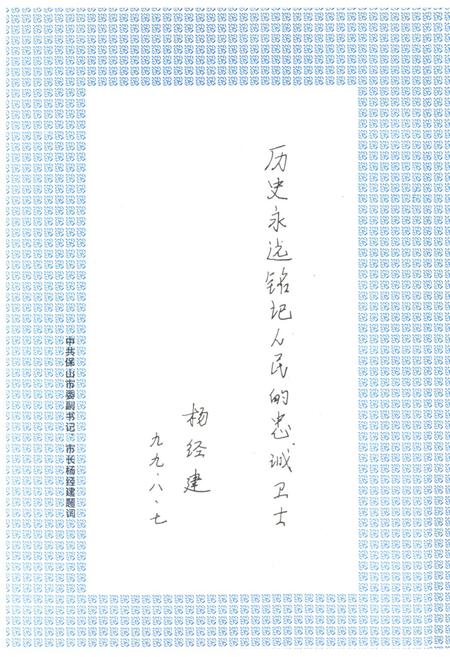 历史永远铭记人民的忠诚卫士
杨经建
九九·八·七
中共保山市委副书记、市长杨经建题词